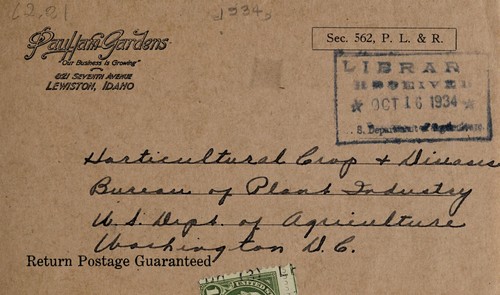 62.01
1934
PayHam Gardens
"Our Business is Growing"
621 SEVENTH AVENUE
LEWISTON, IDAHO
Sec. 562, P. L. & R.
LIBRAR
RECEIVED
★ OCT 16 1934 ★
S. Department of Agriculture
Horticultural Crop & Diseases
Bureau of Plant Industry
U.S. Dept. of Agriculture
Washington D.C.
Return Postage Guaranteed